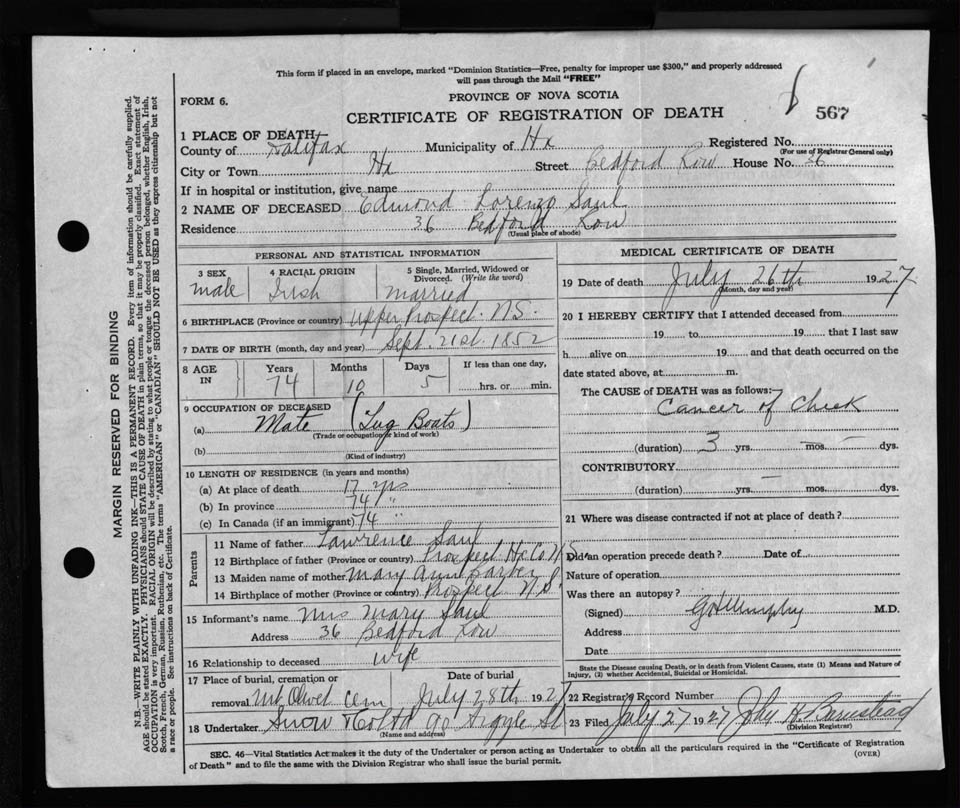 This form if placed in an envelope, marked "Dominion Statistics—Free, penalty for improper use $300," and properly addressed
will pass through the Mail "FREE"
FORM 6.
PROVINCE OF NOVA SCOTIA
567
CERTIFICATE OF REGISTRATION OF DEATH
1 PLACE OF DEATH
County of Halifax Municipality of Hx Registered No.
(For use of Registrar General only)
City or Town Hx Street Bedford Row House No. 36
If in hospital or institution, give name
2 NAME OF DECEASED Edmond Lorenzo Saul
Residence 36 Bedford Row
(Usual place of abode)
PERSONAL AND STATISTICAL INFORMATION
3 SEX 4 RACIAL ORIGIN 5 Single, Married, Widowed or
Divorced. (Write the word)
male Irish married
6 BIRTHPLACE (Province or country) Upper Prospect. N.S.
7 DATE OF BIRTH (month, day and year) Sept. 21st. 1852
8 AGE IN Years Months Days If less than one day,
74 10 5 hrs. or min.
9 OCCUPATION OF DECEASED
(a) Mate (Tug Boats)
(Trade or occupation or kind of work)
(b)
(Kind of industry)
10 LENGTH OF RESIDENCE (in years and months)
(a) At place of death 17 yrs
(b) In province 74 "
(c) In Canada (if an immigrant) 74 "
Parents
11 Name of father Lawrence Saul
12 Birthplace of father (Province or country) Prospect Hx Co N S
13 Maiden name of mother Mary Ann
14 Birthplace of mother (Province or country) Prospect N.S.
15 Informant's name Mrs Mary Saul
Address 36 Bedford Row
16 Relationship to deceased wife
17 Place of burial, cremation or Date of burial
removal Mt Olivet cem July 28th 1927
18 Undertaker Snow & Co Ltd 90 Argyle St
(Name and address)
MEDICAL CERTIFICATE OF DEATH
19 Date of death July 26th 1927
(Month, day and year)
20 I HEREBY CERTIFY that I attended deceased from
19 to 19 that I last saw
h alive on 19 and that death occurred on the
date stated above, at m.
The CAUSE of DEATH was as follows:
Cancer of Cheek
(duration) 3 yrs. — mos. — dys.
CONTRIBUTORY.
(duration) yrs. — mos. dys.
21 Where was disease contracted if not at place of death?
Did an operation precede death? Date of
Nature of operation
Was there an autopsy?
(Signed) G H Murphy M.D.
Address
Date
State the Disease causing Death, or in death from Violent Causes, state (1) Means and Nature of
Injury, (2) whether Accidental, Suicidal or Homicidal.
22 Registrar's Record Number
23 Filed July 27 1927 John H. Barnstead
(Division Registrar)
SEC. 46—Vital Statistics Act makes it the duty of the Undertaker or person acting as Undertaker to obtain all the particulars required in the "Certificate of Registration
of Death" and to file the same with the Division Registrar who shall issue the burial permit.
(OVER)
MARGIN RESERVED FOR BINDING
N.B.—WRITE PLAINLY WITH UNFADING INK—THIS IS A PERMANENT RECORD. Every item of information should be carefully supplied.
AGE should be stated EXACTLY. PHYSICIANS should STATE CAUSE OF DEATH in plain terms, so that it may be properly classified. Exact statement of
OCCUPATION is very important. RACIAL ORIGIN will be described by stating to what people or tongue the deceased person belonged, whether English, Irish,
Scotch, French, German, Russian, Ruthenian, etc. The terms "AMERICAN" or "CANADIAN" SHOULD NOT BE USED as they express citizenship but not
a race or people. See instructions on back of Certificate.